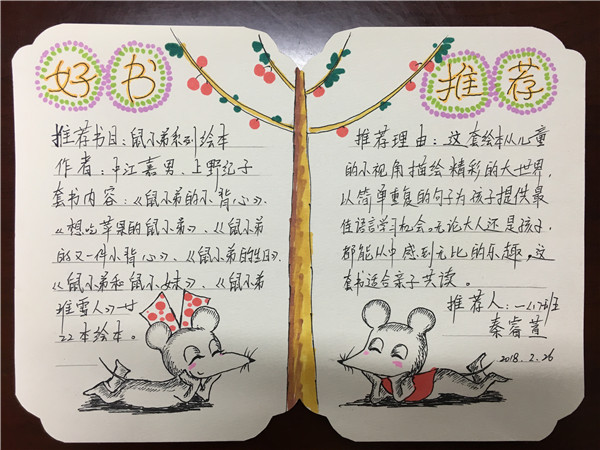 好书
推荐书目：鼠小弟系列绘本
作者：中江嘉男、上野纪子
套书内容：《鼠小弟的小背心》、
《想吃苹果的鼠小弟》、《鼠小弟
的又一件小背心》、《鼠小弟的生日》、
《鼠小弟和鼠小妹》、《鼠小弟
堆雪人》一廿
22本绘本。
推荐
推荐理由：这套绘本从儿童
的小视角描绘精彩的大世界，
以简单重复的句子为孩子提供最
佳语言学习机会。无论大人还是孩子，
都能从中感到无比的乐趣。这
套书适合亲子共读。
推荐人：一（17）班
秦睿萱
2018.2.26